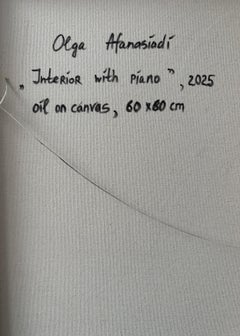 Olga Afanasiadi
„Interior with piano”, 2025
oil on canvas, 60x80 cm